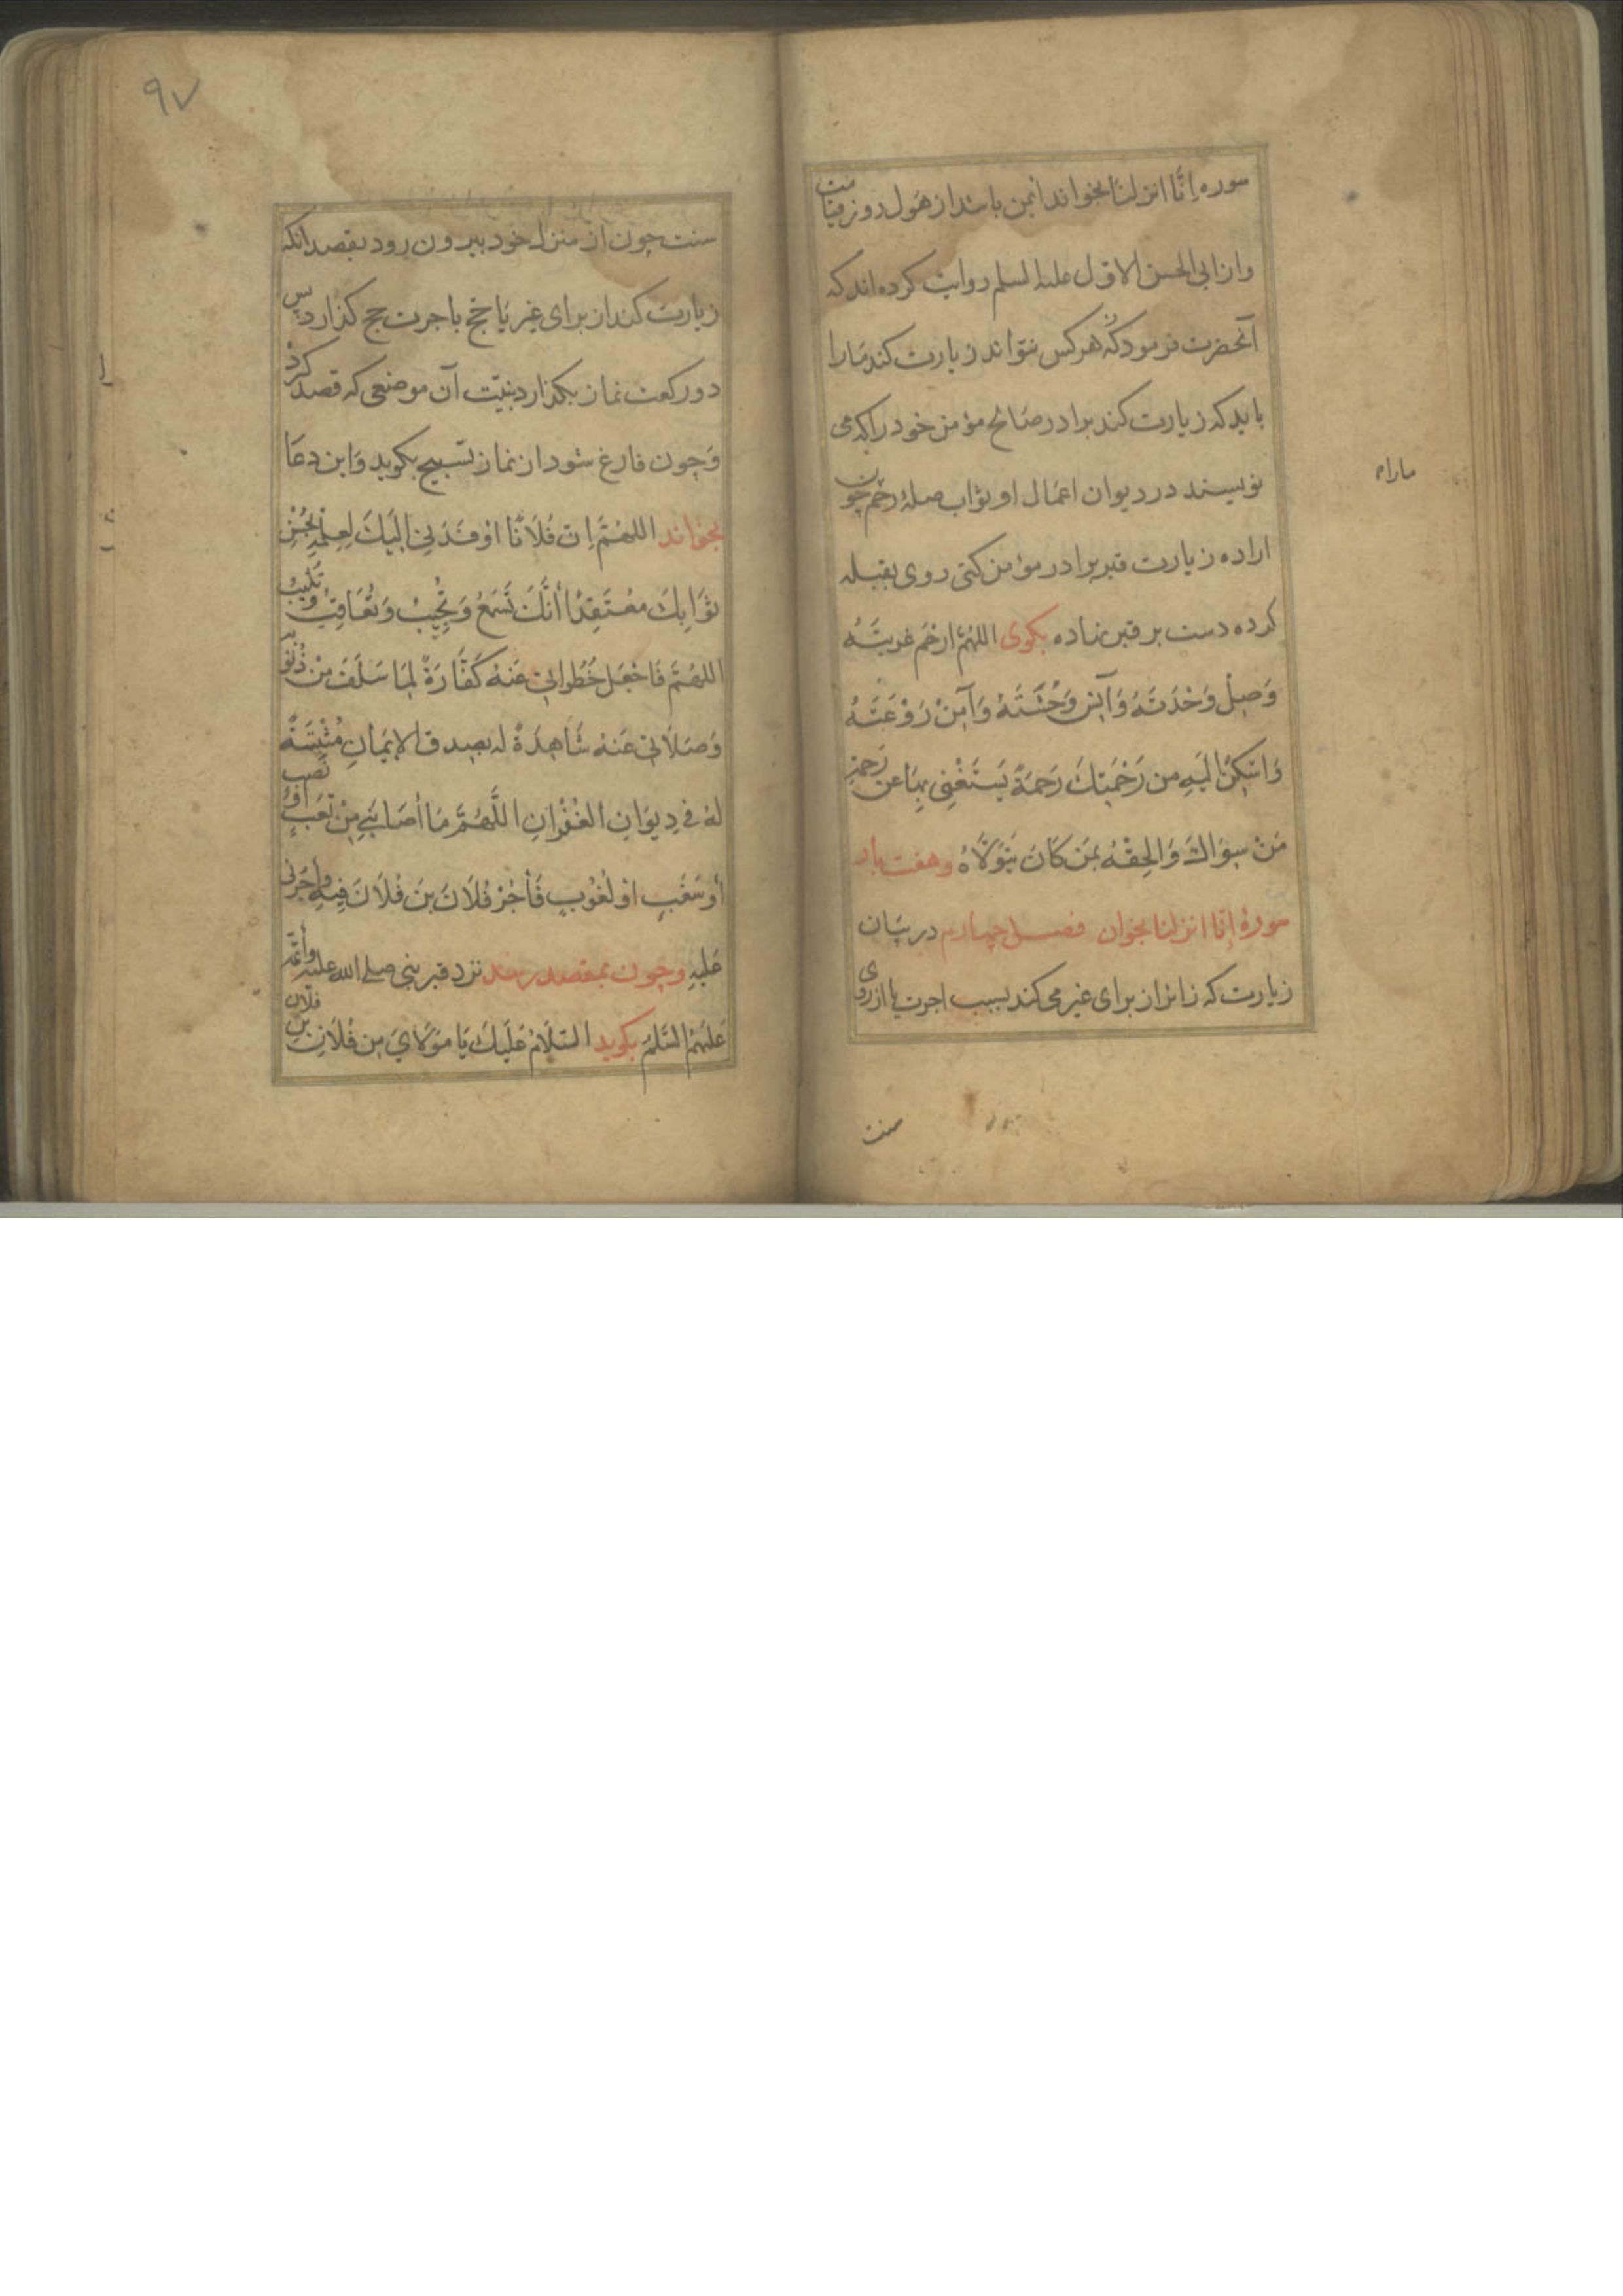 سوره اِنّا انزلنا بخواند ایمن باشد از هول روز قیامت
و از ابی الحسن الاوّل علیه السلم روایت کرده اند که
آنحضرت فرمود که هر کس نتواند زیارت کند مارا
باید که زیارت کند برادر صالح مؤمن خود را که می
نویسند در دیوان اعمال او ثواب صلهٔ رحم چون
اراده زیارت قبر برادر مؤمن کنی روی بقبله
کرده دست بر قبر نهاده بکوی اللهُمَّ ارْحَم غُربَتَهُ
وَصِلْ وَحْدَتَهُ وَآنِس وَحْشَتَهُ وَآمِنْ رَوْعَتَهُ
وَاَسْكِنْ اِلَيهِ مِن رَحْمَتِكَ رَحمَةً يَسْتَغْنِى بِهَا عَن رَحمَةِ
مَنْ سِوَاكَ وَاَلحِقْهُ بِمَن كَانَ يَتَوَلَّاهُ وهفت بار
سورهٔ اِنّا انزلنا بخوان فصل چهارم در بیان
زیارت که زائر از برای غیر می کند بسبب اجرت یا از روی
ماراه
سنت
٩٧
سنت چون از منزل خود بیرون رود بقصد انکه
زیارت کند از برای غیر یا حج باجرت حج کذارد پس
دو رکعت نماز بکذارد بنیّت آن موضعی که قصد کرد
وَچون فارغ شود از نماز تسبیح بکوید وَاین دعَا
بخواند اللهُمَّ اِنَّ فُلَانًا اَوْفَدَنِى اِلَيْكَ لِعِلْمِهِ بِحُسْنِ
ثَوَابِكَ مُعْتَقِدًا أَنَّكَ تَسْمَعُ وَتُجِيبُ وَتُعَاقِبُ وَتُثِيبُ
اللهُمَّ فَاجْعَل خُطُوَاتِى عَنهُ كَفَّارَةً لِمَا سَلَفَ مِنْ ذُنُوبِهِ
وَصَلَاتِى عَنهُ شَاهِدَةً لَهُ بِصِدقِ الاِيمَانِ مُثْبِتَةً
لَهُ فِى دِيوَانِ الغُفْرَانِ اللَّهُمَّ مَا أَصَابَنِي مِنْ تَعَبٍ اَوْ نَصَبٍ
أَو سَغَبٍ اَوْ لُغُوبٍ فَأْجُرْ فُلَانَ بنَ فُلَانَ فِيهِ وَأْجُرْنِى
عَلَيهِ وچون بمقصد رسد نزد قبر نبی صلی الله علیه وائمّه
عَلَيهُمُ السَّلَم بکوید السَّلَامُ عَلَيْكَ يَا مَوْلَايَ مِن فُلَانِ بْنِ فُلَان